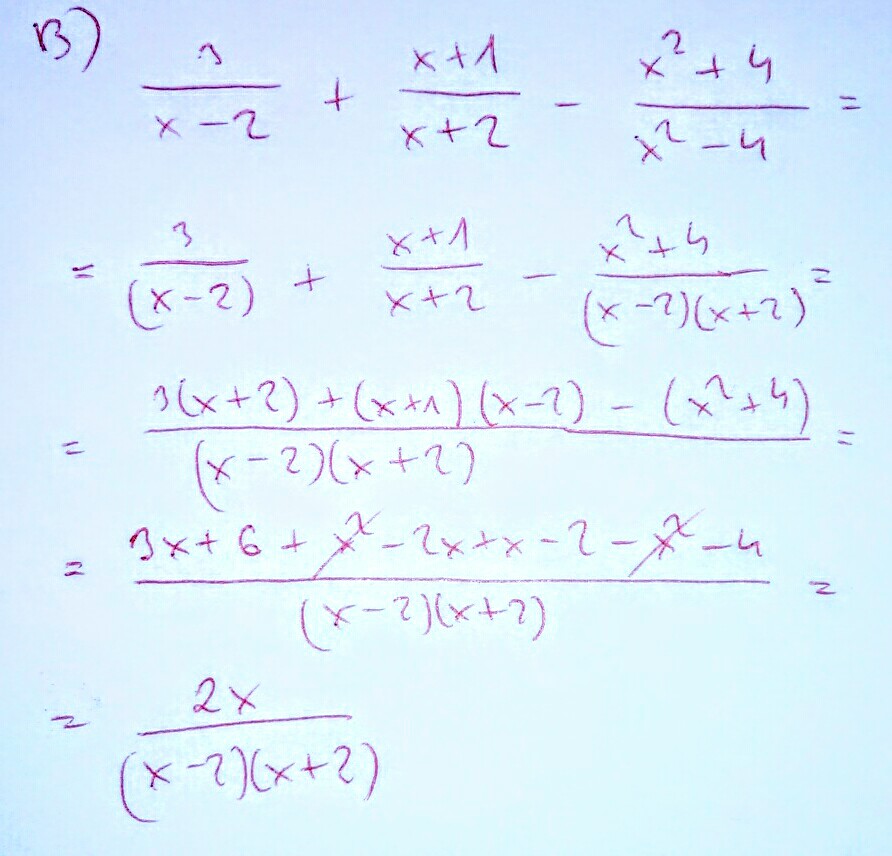 B) 3/(x-2) + (x+1)/(x+2) - (x²+4)/(x²-4) =
= 3/((x-2)) + (x+1)/(x+2) - (x²+4)/((x-2)(x+2)) =
= (3(x+2)+(x+1)(x-2) - (x²+4))/((x-2)(x+2)) =
= (3x+6+x²-2x+x-2-x²-4)/((x-2)(x+2)) =
= 2x/((x-2)(x+2))